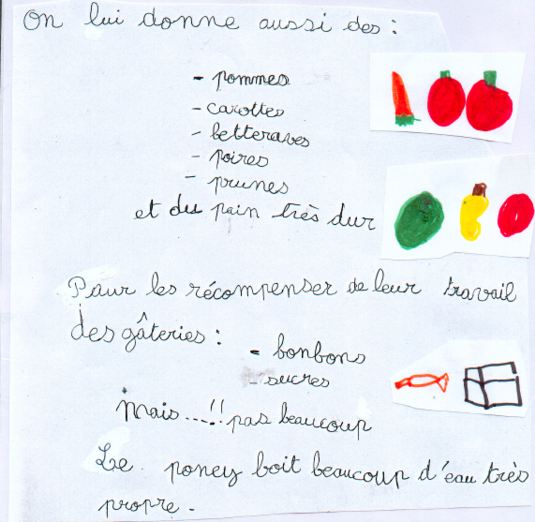 On lui donne aussi des :
- pommes
- carottes
- betteraves
- poires
- prunes
et du pain très dur
Pour les récompenser de leur travail
des gâteries :
- bonbons
- sucres
Mais...!! pas beaucoup
Le poney boit beaucoup d'eau très
propre.